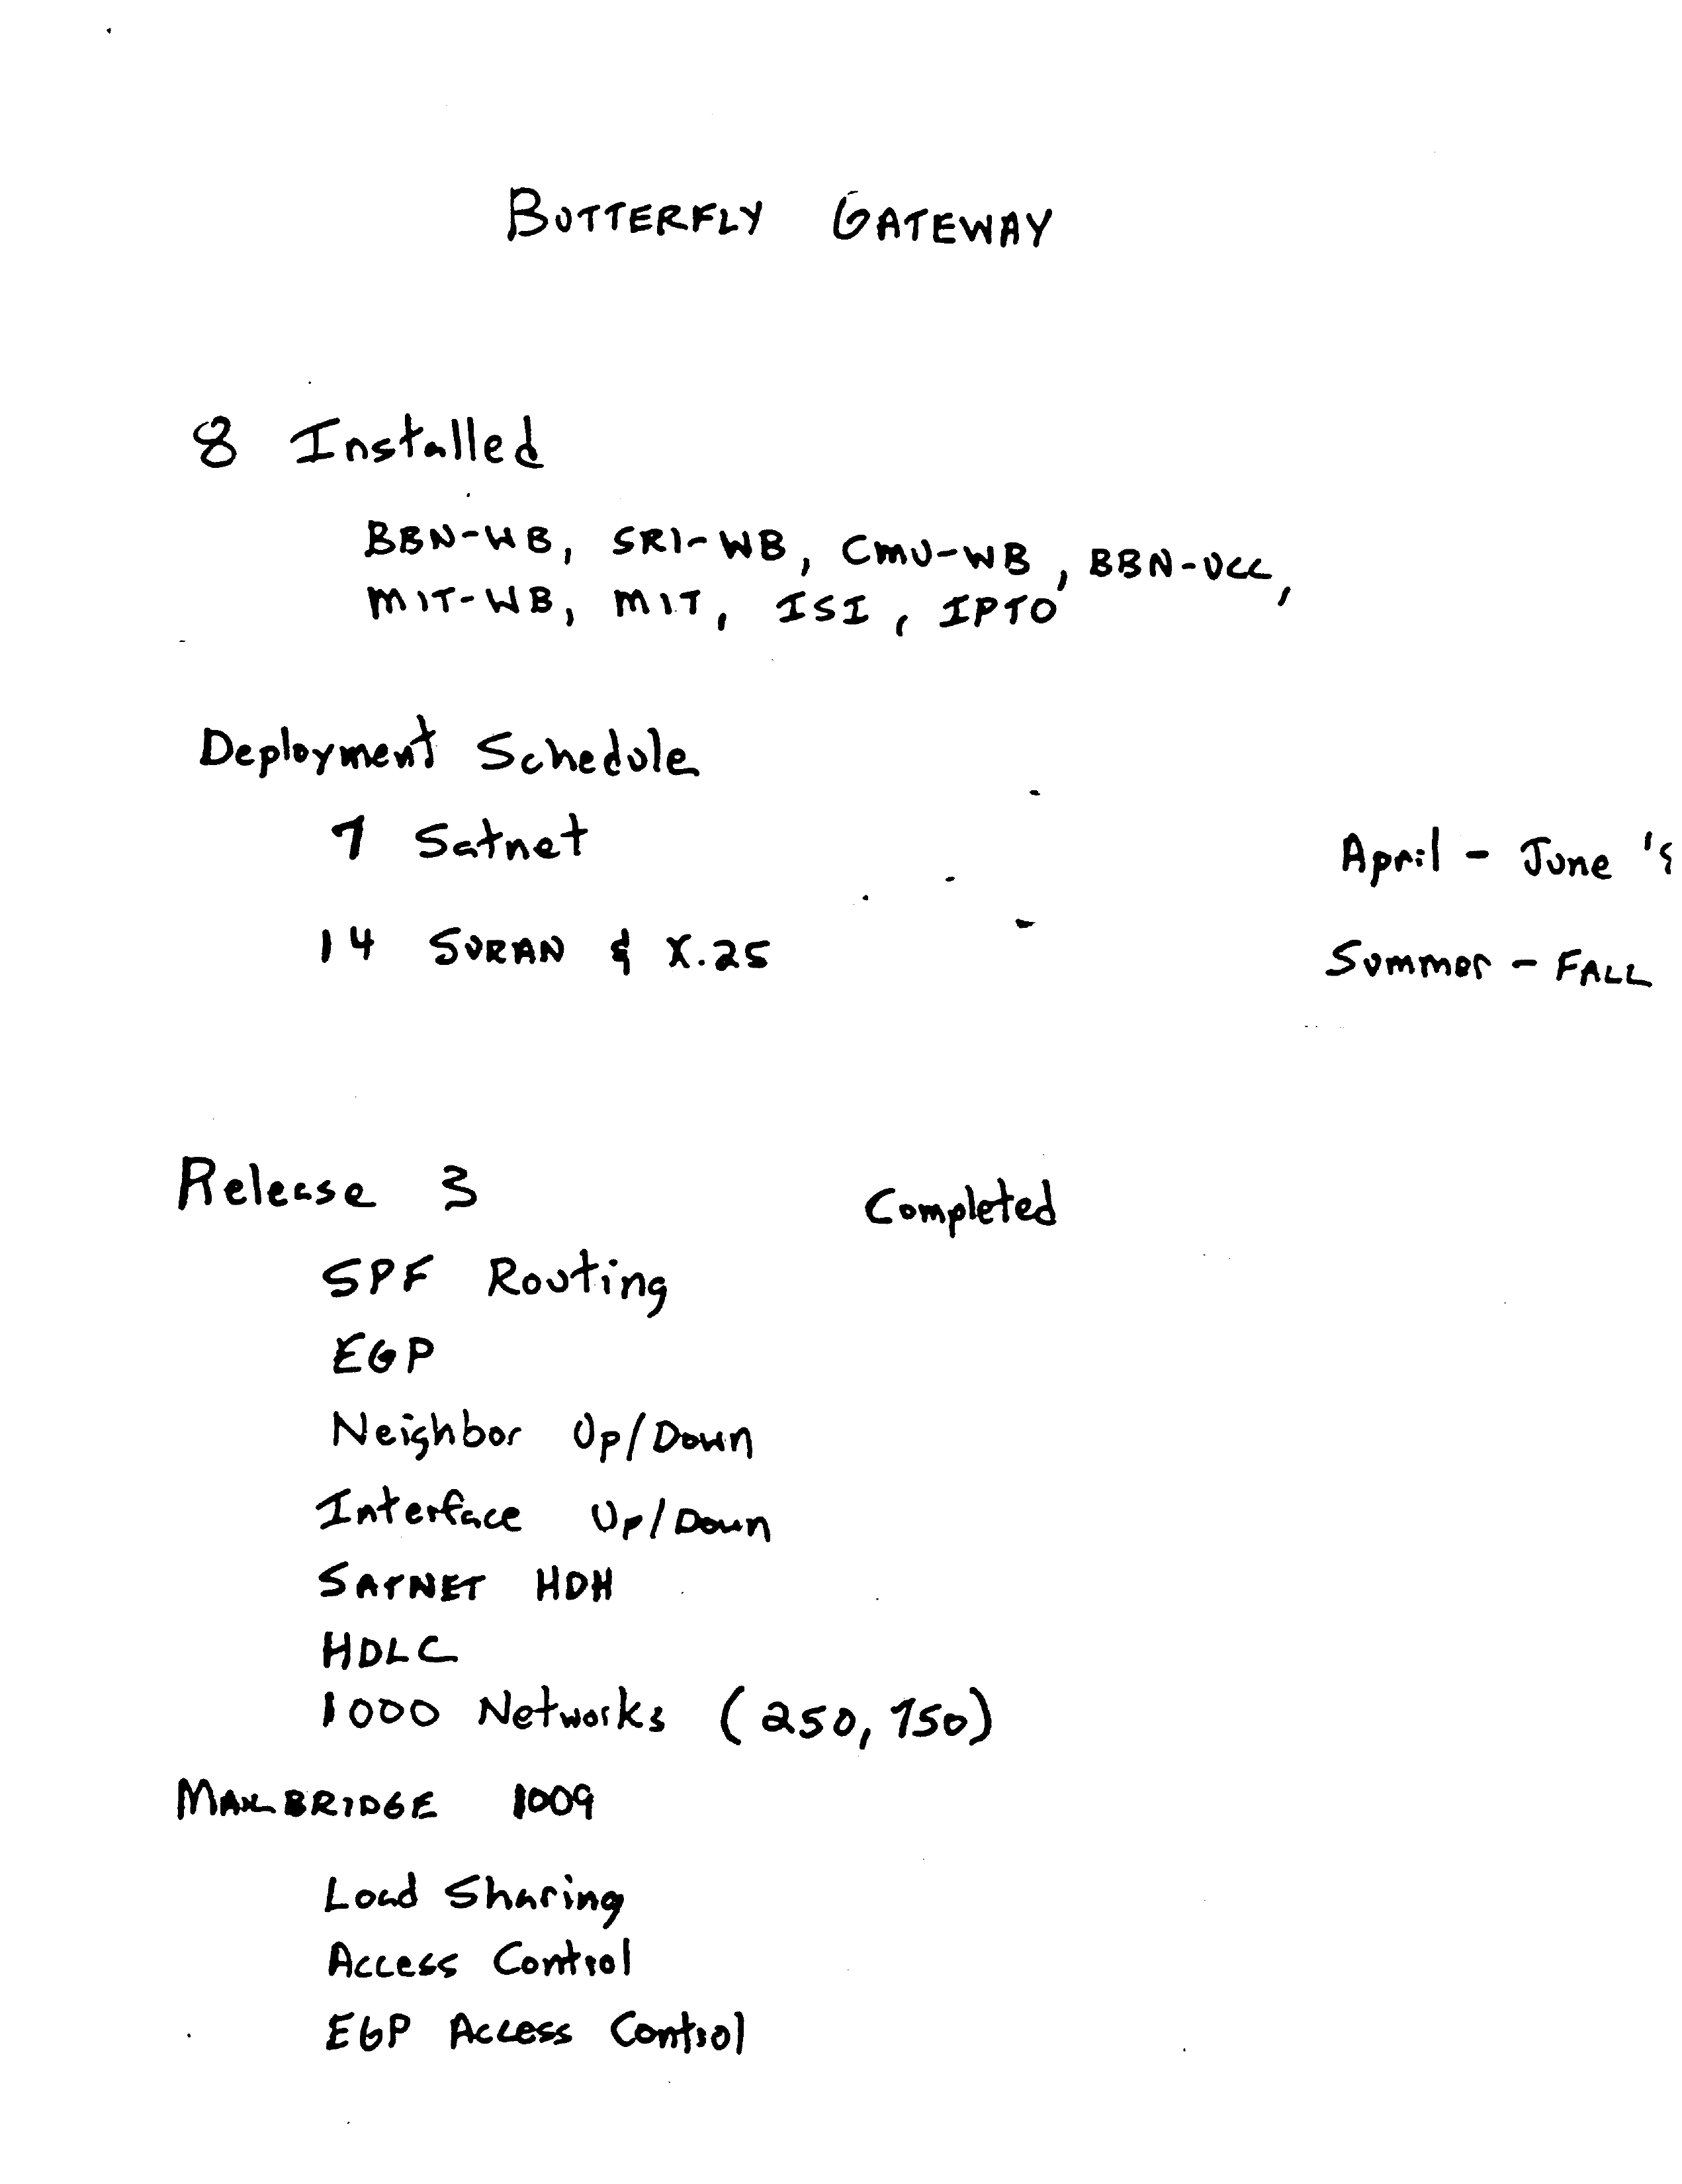 BUTTERFLY GATEWAY
8 Installed
BBN-WB, SRI-WB, CMU-WB, BBN-VCC,
MIT-WB, MIT, ISI, IPTO
Deployment Schedule
7 Satnet April - June '
14 SURAN & X.25 Summer - FALL
Release 3 Completed
SPF Routing
EGP
Neighbor Up/Down
Interface Up/Down
SATNET HDH
HDLC
1000 Networks (250, 750)
MAILBRIDGE 1009
Load Sharing
Access Control
EGP Access Control